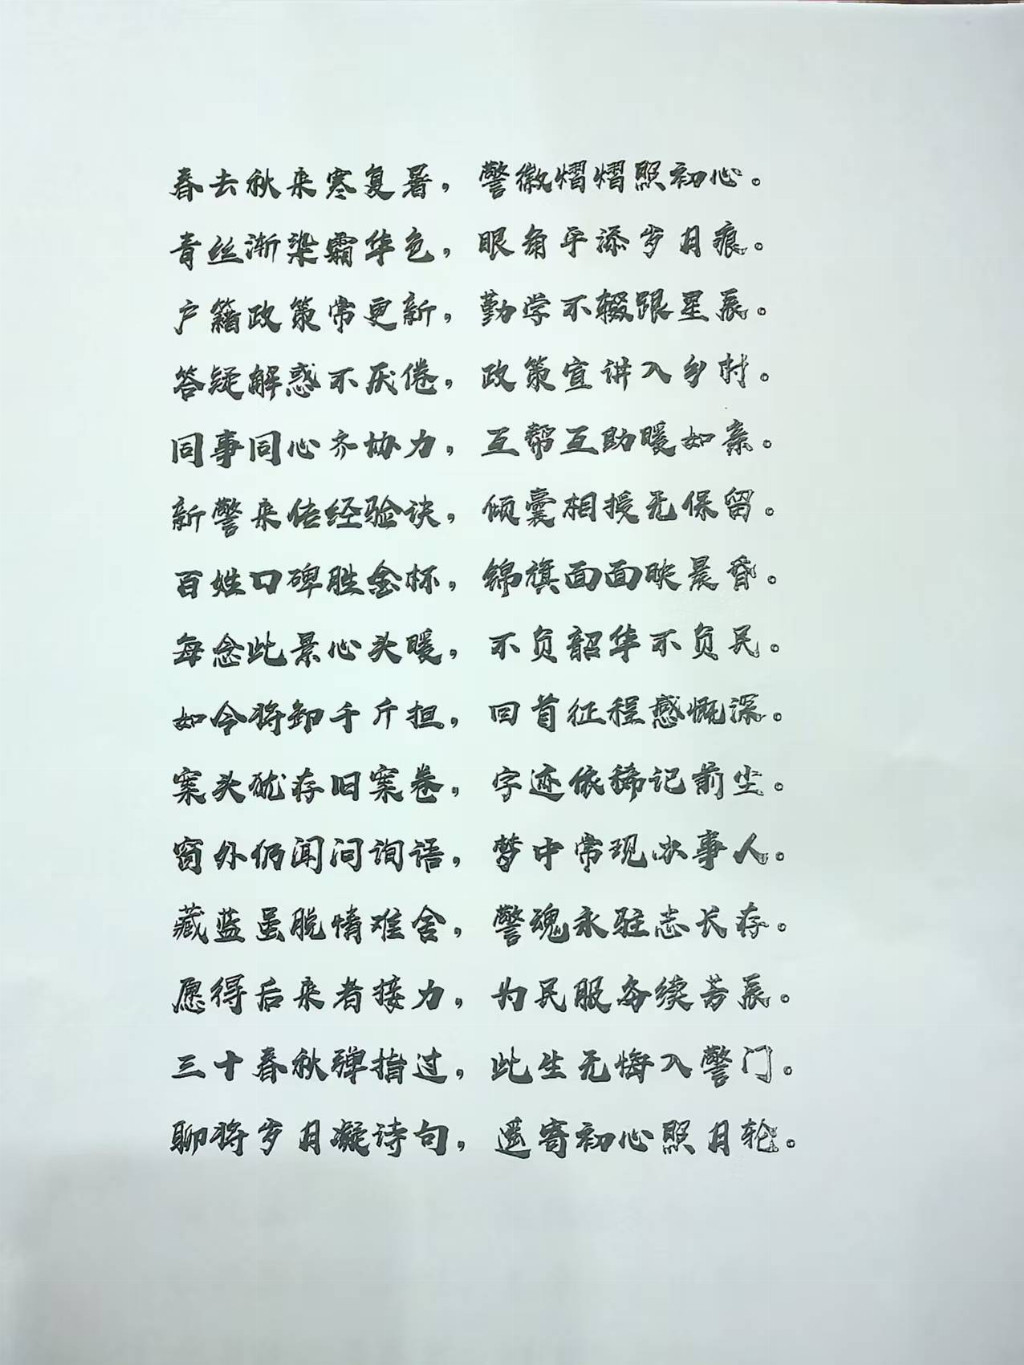 春去秋来寒复暑，警徽熠熠照初心。
青丝渐染霜华色，眼角平添岁月痕。
户籍政策常更新，勤学不辍跟星辰。
答疑解惑不厌倦，政策宣讲入乡村。
同事同心齐协力，互帮互助暖如亲。
新警来传经验诀，倾囊相授无保留。
百姓口碑胜金杯，锦旗面面映晨昏。
每念此景心头暖，不负韶华不负民。
如今将卸千斤担，回首征程感慨深。
案头犹存旧案卷，字迹依稀记前尘。
窗外仍闻问询语，梦中常现办事人。
藏蓝虽脱情难舍，警魂永驻志长存。
愿得后来者接力，为民服务续芳辰。
三十春秋弹指过，此生无悔入警门。
聊将岁月凝诗句，遥寄初心照月轮。